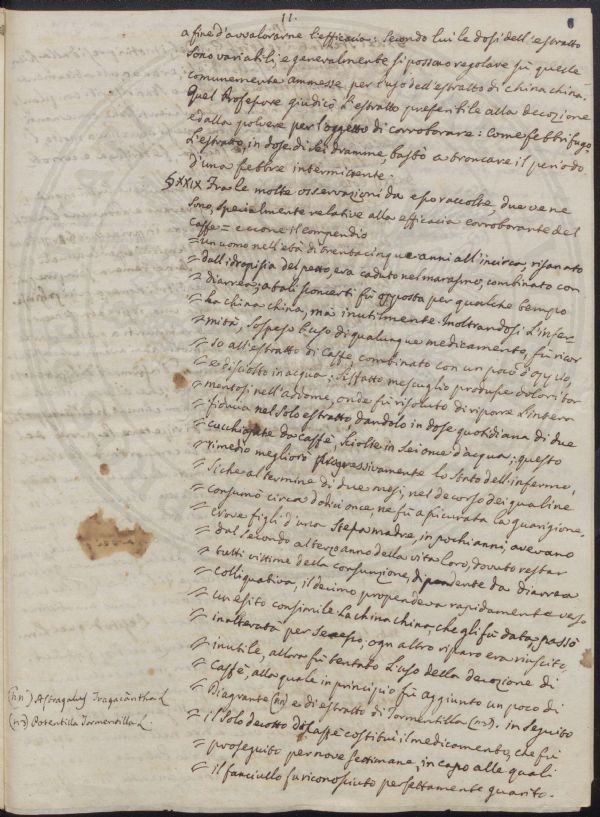 11.
6
a fine d'avvalorarne l'efficacia: Secondo lui le dosi dell'estratto
sono variabili, e generalmente si possono regolare sù queste
comunemente ammesse per l'uso dell'estratto di china china.
Quel Professore giudicò L'estratto preferibile alla decozione
ed alla polvere per l'oggetto di corroborare: come febbrifugo
L'estratto, in dose di dramme, bastò a troncare il periodo
d'una febbre intermittente.
§XXIX Tra le molte osservazioni da esso raccolte, due ve ne
sono, specialmente relative alla efficacia corroborante del
Caffè = eccone il compendio
= un uomo nell'età di trentacinque anni all'incirca, risanato
= dall'idropisia del petto, era caduto nel marasmo, combinato con
= diarrea; a tali sconcerti fù opposta per qualche tempo
= la china china, mà inutilmente. Inoltrandosi l'infer
= mità, sospeso l'uso di qualunque medicamento, fù ricor
= so all'estratto di Caffè combinato con un poco d'oppio,
= e disciolto in acqua; siffatto mescuglio produsse dolori tor
= mentosi nell'addome, onde fù risoluto di riporre l'intera
= fiducia nel solo estratto, dandolo in dose quotidiana di due
= cucchiajate da caffè, sciolte in sei once d'acqua; questo
= rimedio migliorò progressivamente lo stato dell'infermo,
= sicche al termine di due mesi, nel decorso dei quali ne
= consumò circa dodici once, ne fù assicurata la guarigione.
= nove figli d'una stessa madre, in pochi anni, avevano
= dal secondo al terzo anno della vita loro, dovuto restar
= tutti vittime della consunzione, dipendente da diarrea
= colliquativa, il decimo propendeva rapidamente verso
= un esito consimile. La china china, che gli fù data, passò
= inalterata per secesso; ogni altro riparo era riuscito
= inutile, allora fù tentato l'uso della decozione di
= Caffè, alla quale in principio fù aggiunto un poco di
= Diagrante (nn) e di estratto di Tormentilla (nn). in seguito
= il solo decotto di Caffè costituì il medicamento, che fù
= proseguito per nove settimane, in capo alle quali
= il fanciullo fù riconosciuto perfettamente guarito.
(nn) Astragalus Tragacantha L
Potentilla Tormentilla L.